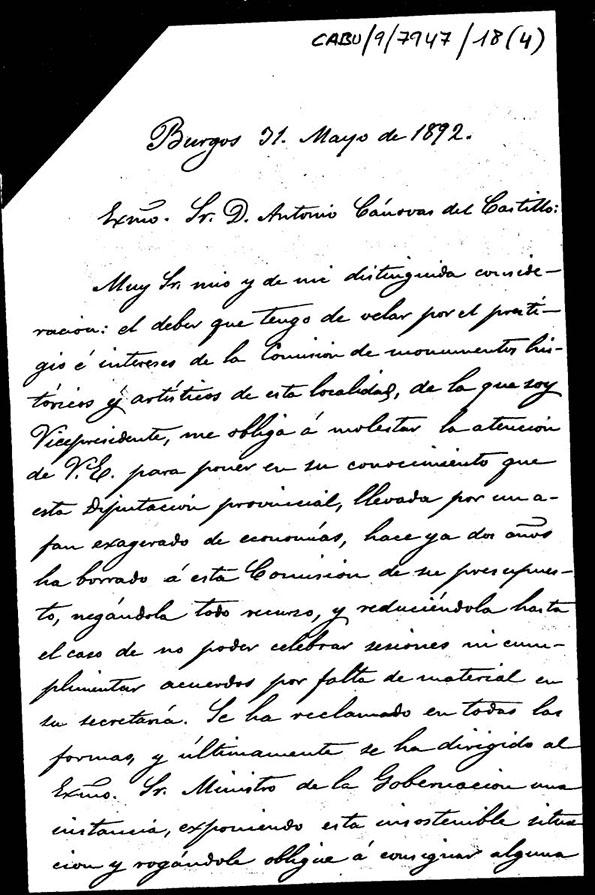 CABU/9/7947/18(4)
Burgos 31. Mayo de 1892.
Exmo. Sr. D. Antonio Cánovas del Castillo:
Muy Sr. mio y de mi distinguida conside-
racion: el deber que tengo de velar por el presti-
gio é intereses de la Comision de monumentos his-
tóricos y artísticos de esta localidad, de la que soy
Vicepresidente, me obliga á molestar la atención
de V.E. para poner en su conocimiento que
esta Diputación provincial, llevada por un a-
fan exagerado de economías, hace ya dos años
ha borrado á esta Comision de su presupues-
to, negándola todo recurso, y reduciéndola hasta
el caso de no poder celebrar sesiones ni cum-
plimentar acuerdos por falta de material en
su secretaría. Se ha reclamado en todas las
formas, y últimamente se ha dirigido al
Exmo. Sr. Ministro de la Gobernacion una
instancia, exponiendo esta insostenible situa
cion y rogándole obligue á consignar alguna